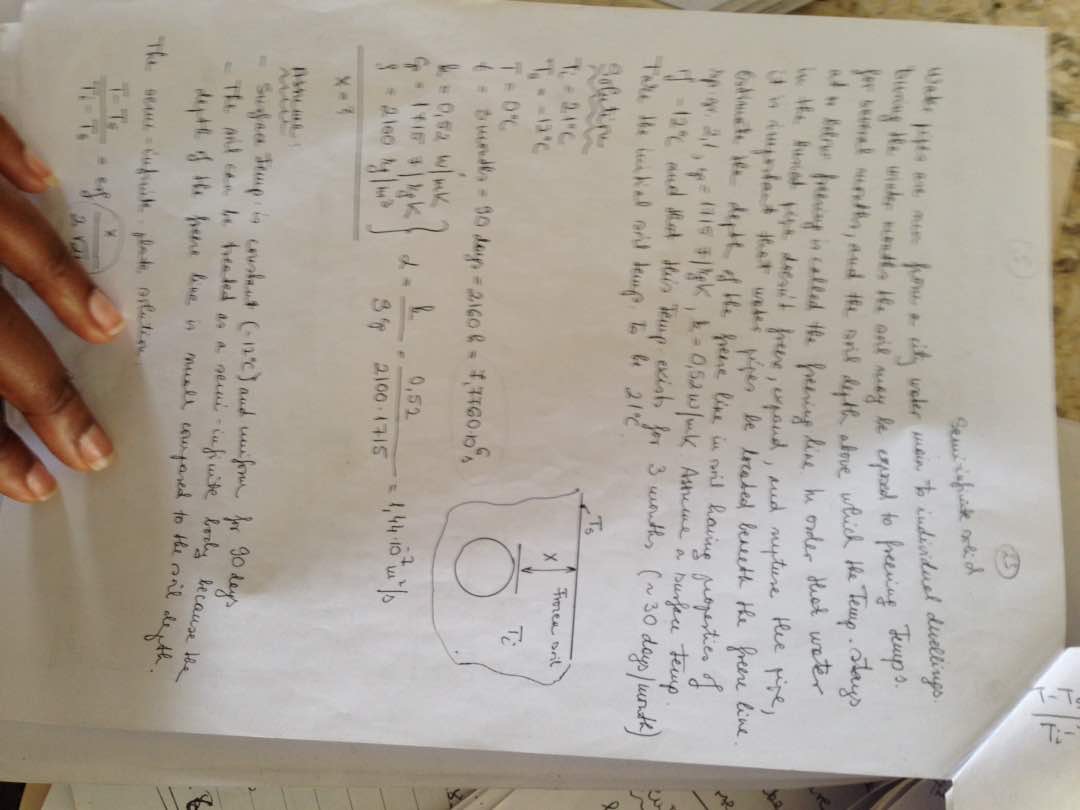 23
Semi-infinite solid
Water pipes are run from a city water main to individual dwellings.
During the winter months the soil may be exposed to freezing temps.
for several months, and the soil depth above which the temp. stays
at or below freezing is called the freezing line. In order that water
in the buried pipe doesn't freeze, expand, and rupture the pipe,
it is important that water pipes be located beneath the freeze line.
Estimate the depth of the freeze line in soil having properties of
sp. gr. 2,1, cp = 1715 J/kgK, k = 0,52 W/mK. Assume a surface temp.
of -12°C and that this temp exists for 3 months (~30 days/month)
Take the initial soil temp to be 21°C.
Solution
Ti = 21°C
Ts = -12°C
T = 0°C
t = 3 months = 90 days = 2160 h = 7,7760·10⁶ s
k = 0,52 W/mK
Cp = 1715 J/kgK
ρ = 2100 kg/m³
α = k/ρcp = 0,52/2100·1715 = 1,44·10⁻⁷ m²/s
x = ?
Ts
x
Frozen soil
Ti
Assume:
- Surface temp. is constant (-12°C) and uniform for 90 days
- The soil can be treated as a semi-infinite body because the
depth of the freeze line is much compared to the soil depth.
The semi-infinite-plate solution
T - Ts / Ti - Ts = erf x / 2